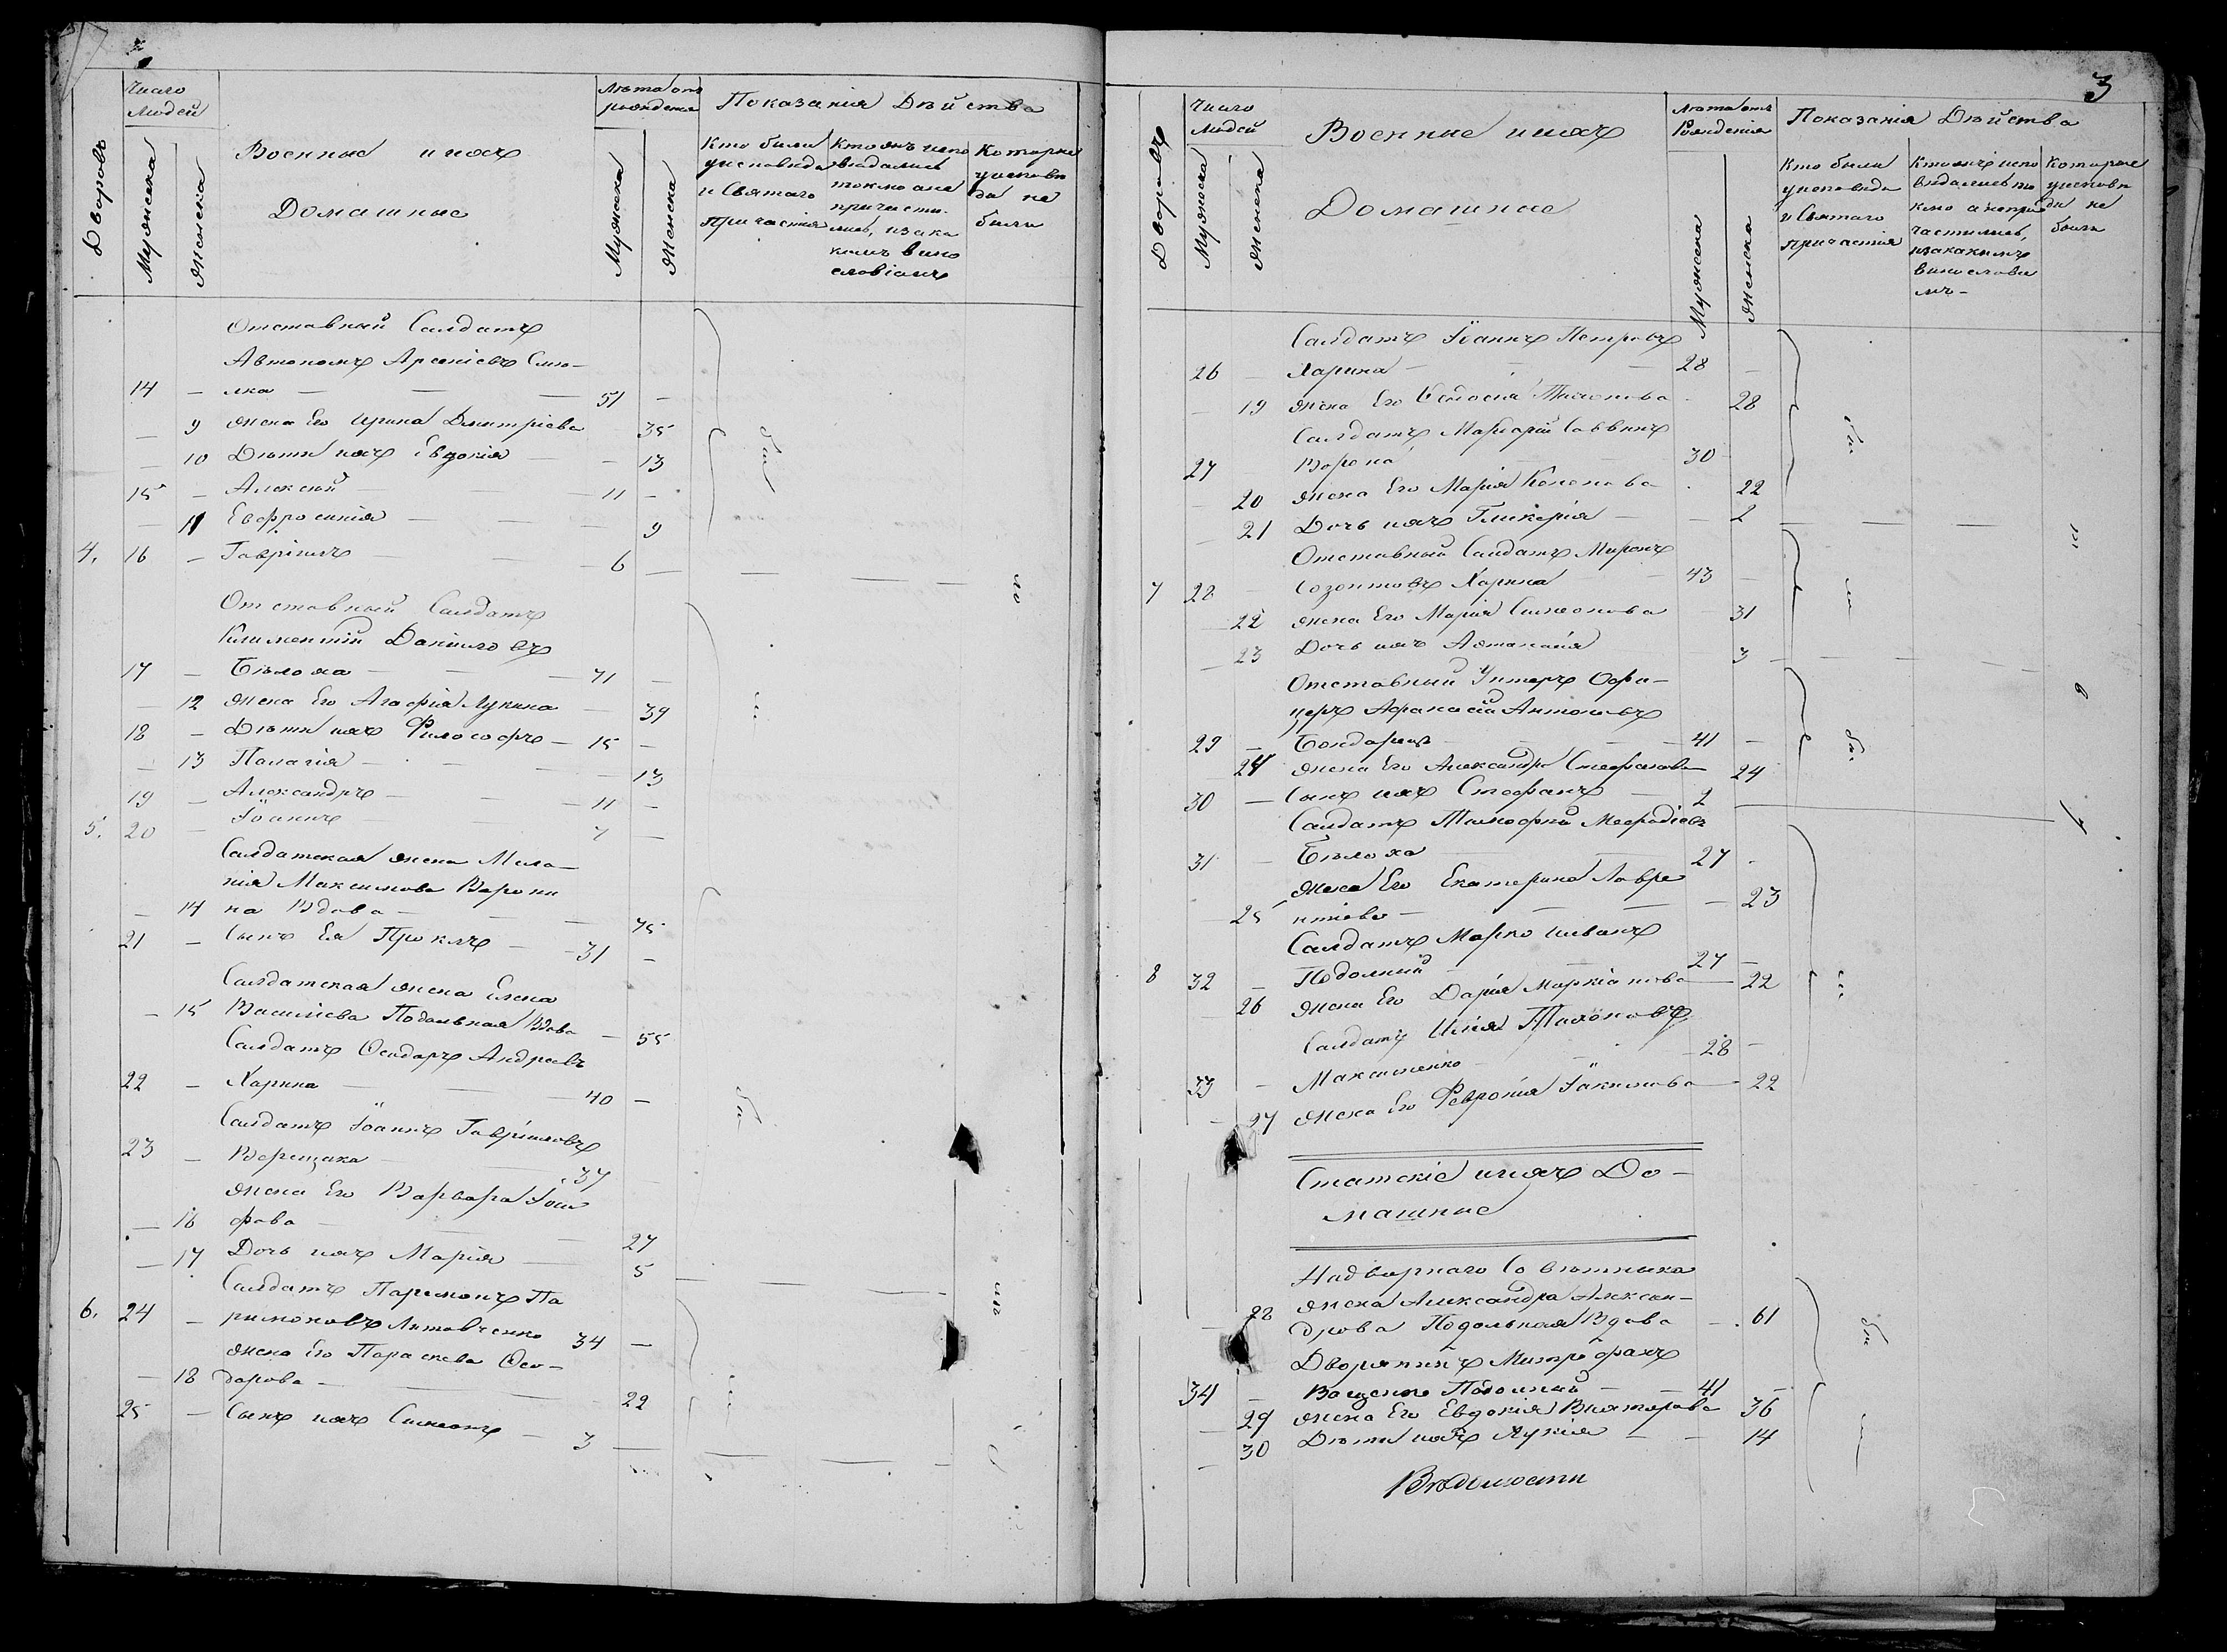 Дворовъ
Число
Людей
Мужеска
Женска
Военные и ихъ
Домашные
Лѣта отъ
рожденія
Мужеска
Женска
Показанія Дѣйства
Кто были
уисповѣда
и Святаго
Причастія
Кто изъ испо
вѣдались
токмо а не
причасти-
лись, и за ка
кимъ вино
словіемъ
Которые
уисповѣ
ди не
были
Отставный Салдатъ
Автономъ Арсеніевъ Смо-
14 — лка — — — 51 —
— 9 жена Его Ирина Дмитріева — 35
— 10 Дѣти ихъ Евдокія — — 13
15 — Алексѣй — — — 11 —
— 11 Евфросинія — — — 9
4. 16 — Гавріилъ — — — 6 —
Отставный Салдатъ
Климентій Даніиловъ
17 — Бѣлоха — — — 71 —
— 12 жена Его Агафія Лукина — 39
18 — Дѣти ихъ Философъ — 15 —
— 13 Палагія — — — 13
19 — Александръ — — — 11 —
5. 20 — Іоаннъ — — 7 —
Салдатская жена Мела-
нія Максимова Варони
— 14 на Вдова — — — 75
21 — Сынъ Ея Проклъ — — 31 —
Салдатская жена Елена
— 15 Василіева Подольная Вдова — 55
Салдатъ Ѳеодоръ Андреевъ
22 — Харина — — — 40 —
Салдатъ Іоаннъ Гавріиловъ
23 — Верещака — — 37
жена Его Варвара Іоси
— 16 фова — — 27
— 17 Дочь ихъ Марія — 5
Салдатъ Парамонъ Па
6. 24 — рамоновъ Литовченко 34 —
жена Его Параскева Ѳео-
— 18 дорова — — — 22
25 — Сынъ ихъ Симеонъ — 3 —
3
Дворовъ
Число
Людей
Мужеска
Женска
Военные и ихъ
Домашные
Лѣта отъ
Рожденія
Мужеска
Женска
Показанія Дѣйства
Кто были
уисповѣда
и Святаго
причастія
Кто изъ испо
вѣдались то
кмо а не при
частились,
и за какимъ
винословіе
мъ-
Которые
уисповѣ
ди не
были
Салдатъ Іоаннъ Петровъ
26 — Харина — — 28 —
— 19 жена Его Ѳеодосія Тихонова 28
Салдатъ Маркорій Саввинъ
27 Ворона 30
— 20 жена Его Марія Кононова 22
— 21 Дочь ихъ Гликерія — — 2
Отставный Салдатъ Миронъ
7 28 Созонтовъ Харина — 43
— 22 жена Его Марія Симеонова 31
— 23 Дочь ихъ Аѳанасія 3
Отставный Унтеръ Офи-
церъ Афанасій Антоновъ
29 — Бондарца — — 41 —
24 жена Его Александра Стефанова 24
30 — Сынъ ихъ Стефанъ — 2
Салдатъ Тимофей Мефодіевъ
31 — Бѣлоха — — 27
жена Его Екатерина Лавре
— 25 нтіева — — — 23
Салдатъ Марко Ивановъ
8 32 — Подолний — — 27 —
— 26 жена Его Дарія Маркіанова — 22
Салдатъ Илія Тихоновъ
33 — Максименко — — 28 —
— 27 жена Его Февронія Іакимова — 22
Статскіе и ихъ До-
машные
Надворнаго Совѣтника
жена Александра Алексан-
— 28 дрова Подольная Вдова — 61
Дворянинъ Митрофанъ
34 — Ващенко Подолний — — 41 —
— 29 жена Его Евдокія Викторова 36
— 30 Дѣти ихъ Лукія — — 14
Вѣдомости